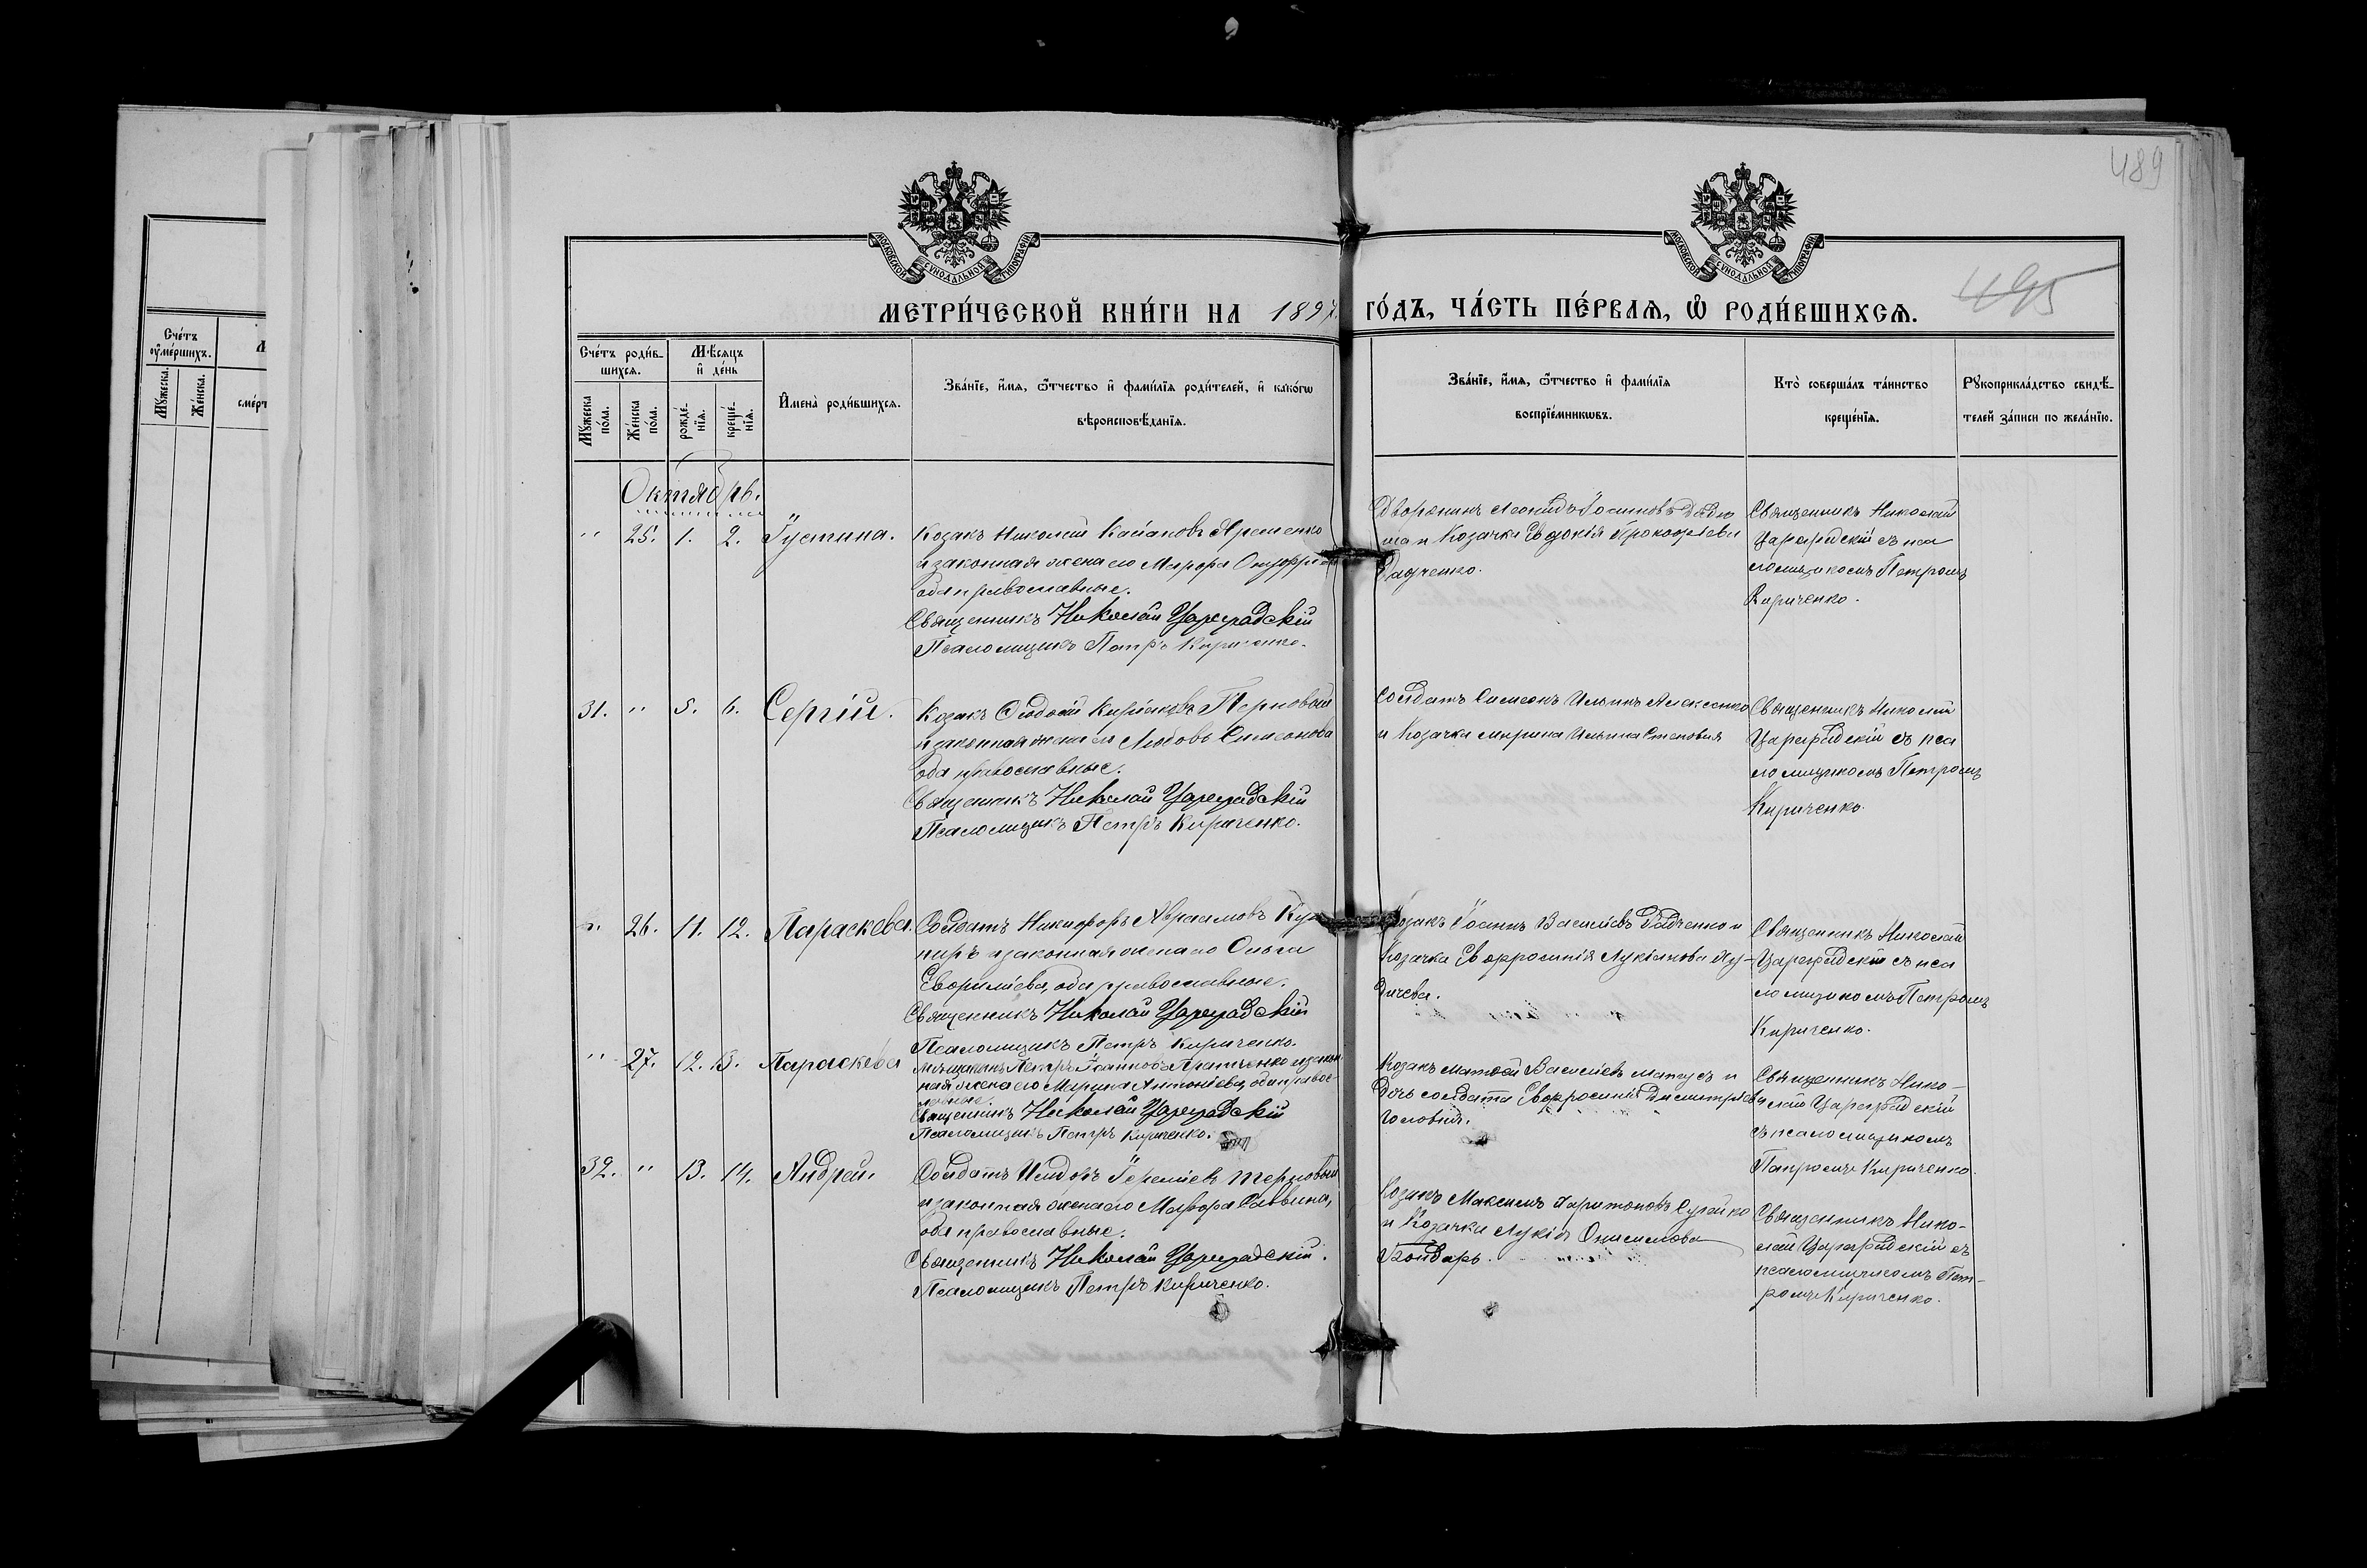 489
495
МОСКОВСКОЙ СѴНОДАЛЬНОЙ ТИПОГРАФІИ
МОСКОВСКОЙ СѴНОДАЛЬНОЙ ТИПОГРАФІИ
МЕТРИ́ЧЕСКОЙ КНИ́ГИ НА 1897 ГО́ДЪ, ЧА́СТЬ ПЕ́РВАѦ, Ѡ РОДИ́ВШИХСѦ.
Сче́тъ оу҆ме́ршихъ.
Мꙋ́жеска.
Же́нска.
сме́рт
Сче́тъ роди́в-
шихсѧ.
Мꙋ́жеска
по́ла.
Же́нска
по́ла.
Мѣ́сѧцъ
и҆ де́нь
рожде́-
нїѧ.
креще́-
нїѧ.
И҆мена̀ роди́вшихсѧ.
Зва́нїе, и҆́мѧ, ѻ҆́тчество и҆ фами́лїѧ роди́телей, и҆ како́гѡ
вѣроисповѣ́данїѧ.
Зва́нїе, и҆́мѧ, ѻ҆́тчество и҆ фами́лїѧ
воспрїе́мникѡвъ.
Кто̀ соверша́лъ та́инство
креще́нїѧ.
Рꙋкоприкла́дство свидѣ́-
телей за́писи по жела́нїю.
Октябрь.
" 25. 1. 2. Іустина.
Козакъ Николай Яременко
и законная жена его Марфа
оба православные.
Священникъ Николай Цареградскій
Псаломщикъ Петръ Кириченко.
Дворянинъ Леонидъ
и Козачка Евдокія Прокофіева
Радченко.
Священникъ Николай
Цареградскій съ пса
ломщикомъ Петромъ
Кириченко.
31. " 5. 6. Сергій.
Козакъ Феодосій Терновый
и законная жена его Любовь Симеонова
оба православные.
Священникъ Николай Цареградскій
Псаломщикъ Петръ Кириченко.
Солдатъ Симеонъ Ильинъ Алексенко
и Козачка Марина Ильина Степовая
Священникъ Николай
Цареградскій съ пса
ломщикомъ Петромъ
Кириченко.
". 26. 11. 12. Параскева.
Солдатъ Никифоръ Авраамовъ
и законная жена его Ольга
оба православные.
Священникъ Николай Цареградскій
Псаломщикъ Петръ Кириченко.
Козакъ Іоаннъ Василіевъ Радченко и
Козачка Евфросинія Лукіанова
Священникъ Николай
Цареградскій съ пса
ломщикомъ Петромъ
Кириченко.
" 27. 12. 13. Параскева
Мѣщанинъ Петръ Іоанновъ и закон
ная жена его Марина Антоніева, оба правос-
лавные.
Священникъ Николай Цареградскій
Псаломщикъ Петръ Кириченко.
Козакъ Матѳей Василіевъ и
дочь солдата Евфросинія Димитріева
Головня.
Священникъ Нико-
лай Цареградскій
съ псаломщикомъ
Петромъ Кириченко.
32. " 13. 14. Андрей.
Солдатъ Іереміевъ Терновый
и законная жена его Марфа Саввина,
оба православные.
Священникъ Николай Цареградскій.
Псаломщикъ Петръ Кириченко.
Козакъ Максимъ Харитоновъ
и Козачка Лукія Онисимова
Бондарь.
Священникъ Нико-
лай Цареградскій съ
псаломщикомъ Пет-
ромъ Кириченко.